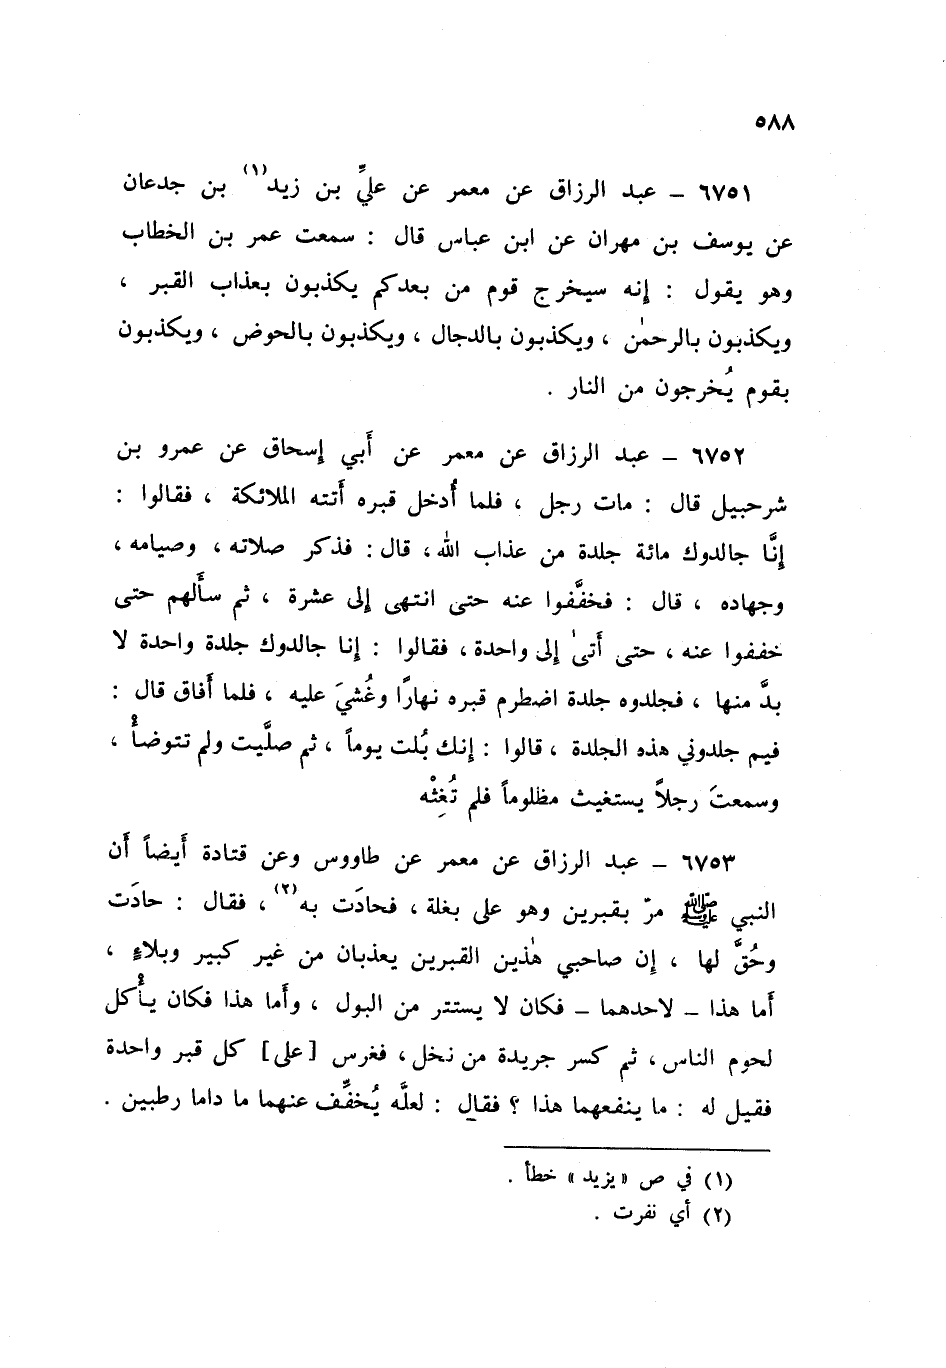 ٥٨٨
٦٧٥١ – عبد الرزاق عن معمر عن عليِّ بن زيد(١) بن جدعان
عن يوسف بن مهران عن ابن عباس قال : سمعت عمر بن الخطاب
وهو يقول : إنه سيخرج قوم من بعدكم يكذبون بعذاب القبر ،
ويكذبون بالرحمٰن ، ويكذبون بالدجال ، ويكذبون بالحوض ، ويكذبون
بقوم يُخرجون من النار .
٦٧٥٢ – عبد الرزاق عن معمر عن أبي إسحاق عن عمرو بن
شرحبيل قال : مات رجل ، فلما أُدخل قبره أتته الملائكة ، فقالوا :
إنَّا جالدوك مائة جلدة من عذاب الله، قال: فذكر صلاته ، وصيامه ،
وجهاده ، قال : فخفَّفوا عنه حتى انتهى إلى عشرة ، ثم سألهم حتى
خففوا عنه ، حتى أتىٰ إلى واحدة ، فقالوا : إنا جالدوك جلدة واحدة لا
بدَّ منها ، فجلدوه جلدة اضطرم قبره نهارًا وغُشيَ عليه ، فلما أفاق قال :
فيم جلدوني هذه الجلدة ، قالوا : إنك بُلت يوماً ، ثم صلَّيت ولم تتوضأْ ،
وسمعتَ رجلاً يستغيث مظلوماً فلم تُغِثْه
٦٧٥٣ – عبد الرزاق عن معمر عن طاووس وعن قتادة أيضاً أن
النبي ﷺ مرّ بقبرين وهو على بغلة ، فحادَت به(٢) ، فقال : حادَت
وحُقَّ لها ، إن صاحبي هٰذين القبرين يعذبان من غير كبير وبلاءٍ ،
أما هذا – لاحدهما – فكان لا يستتر من البول ، وأما هذا فكان يأْكل
لحوم الناس ، ثم كسر جريدة من نخل ، فغرس [على] كل قبر واحدة
فقيل له : ما ينفعهما هذا ؟ فقال : لعلَّه يُخفَّف عنهما ما داما رطبين .
(١) في ص «يزيد» خطأ .
(٢) أي نفرت .